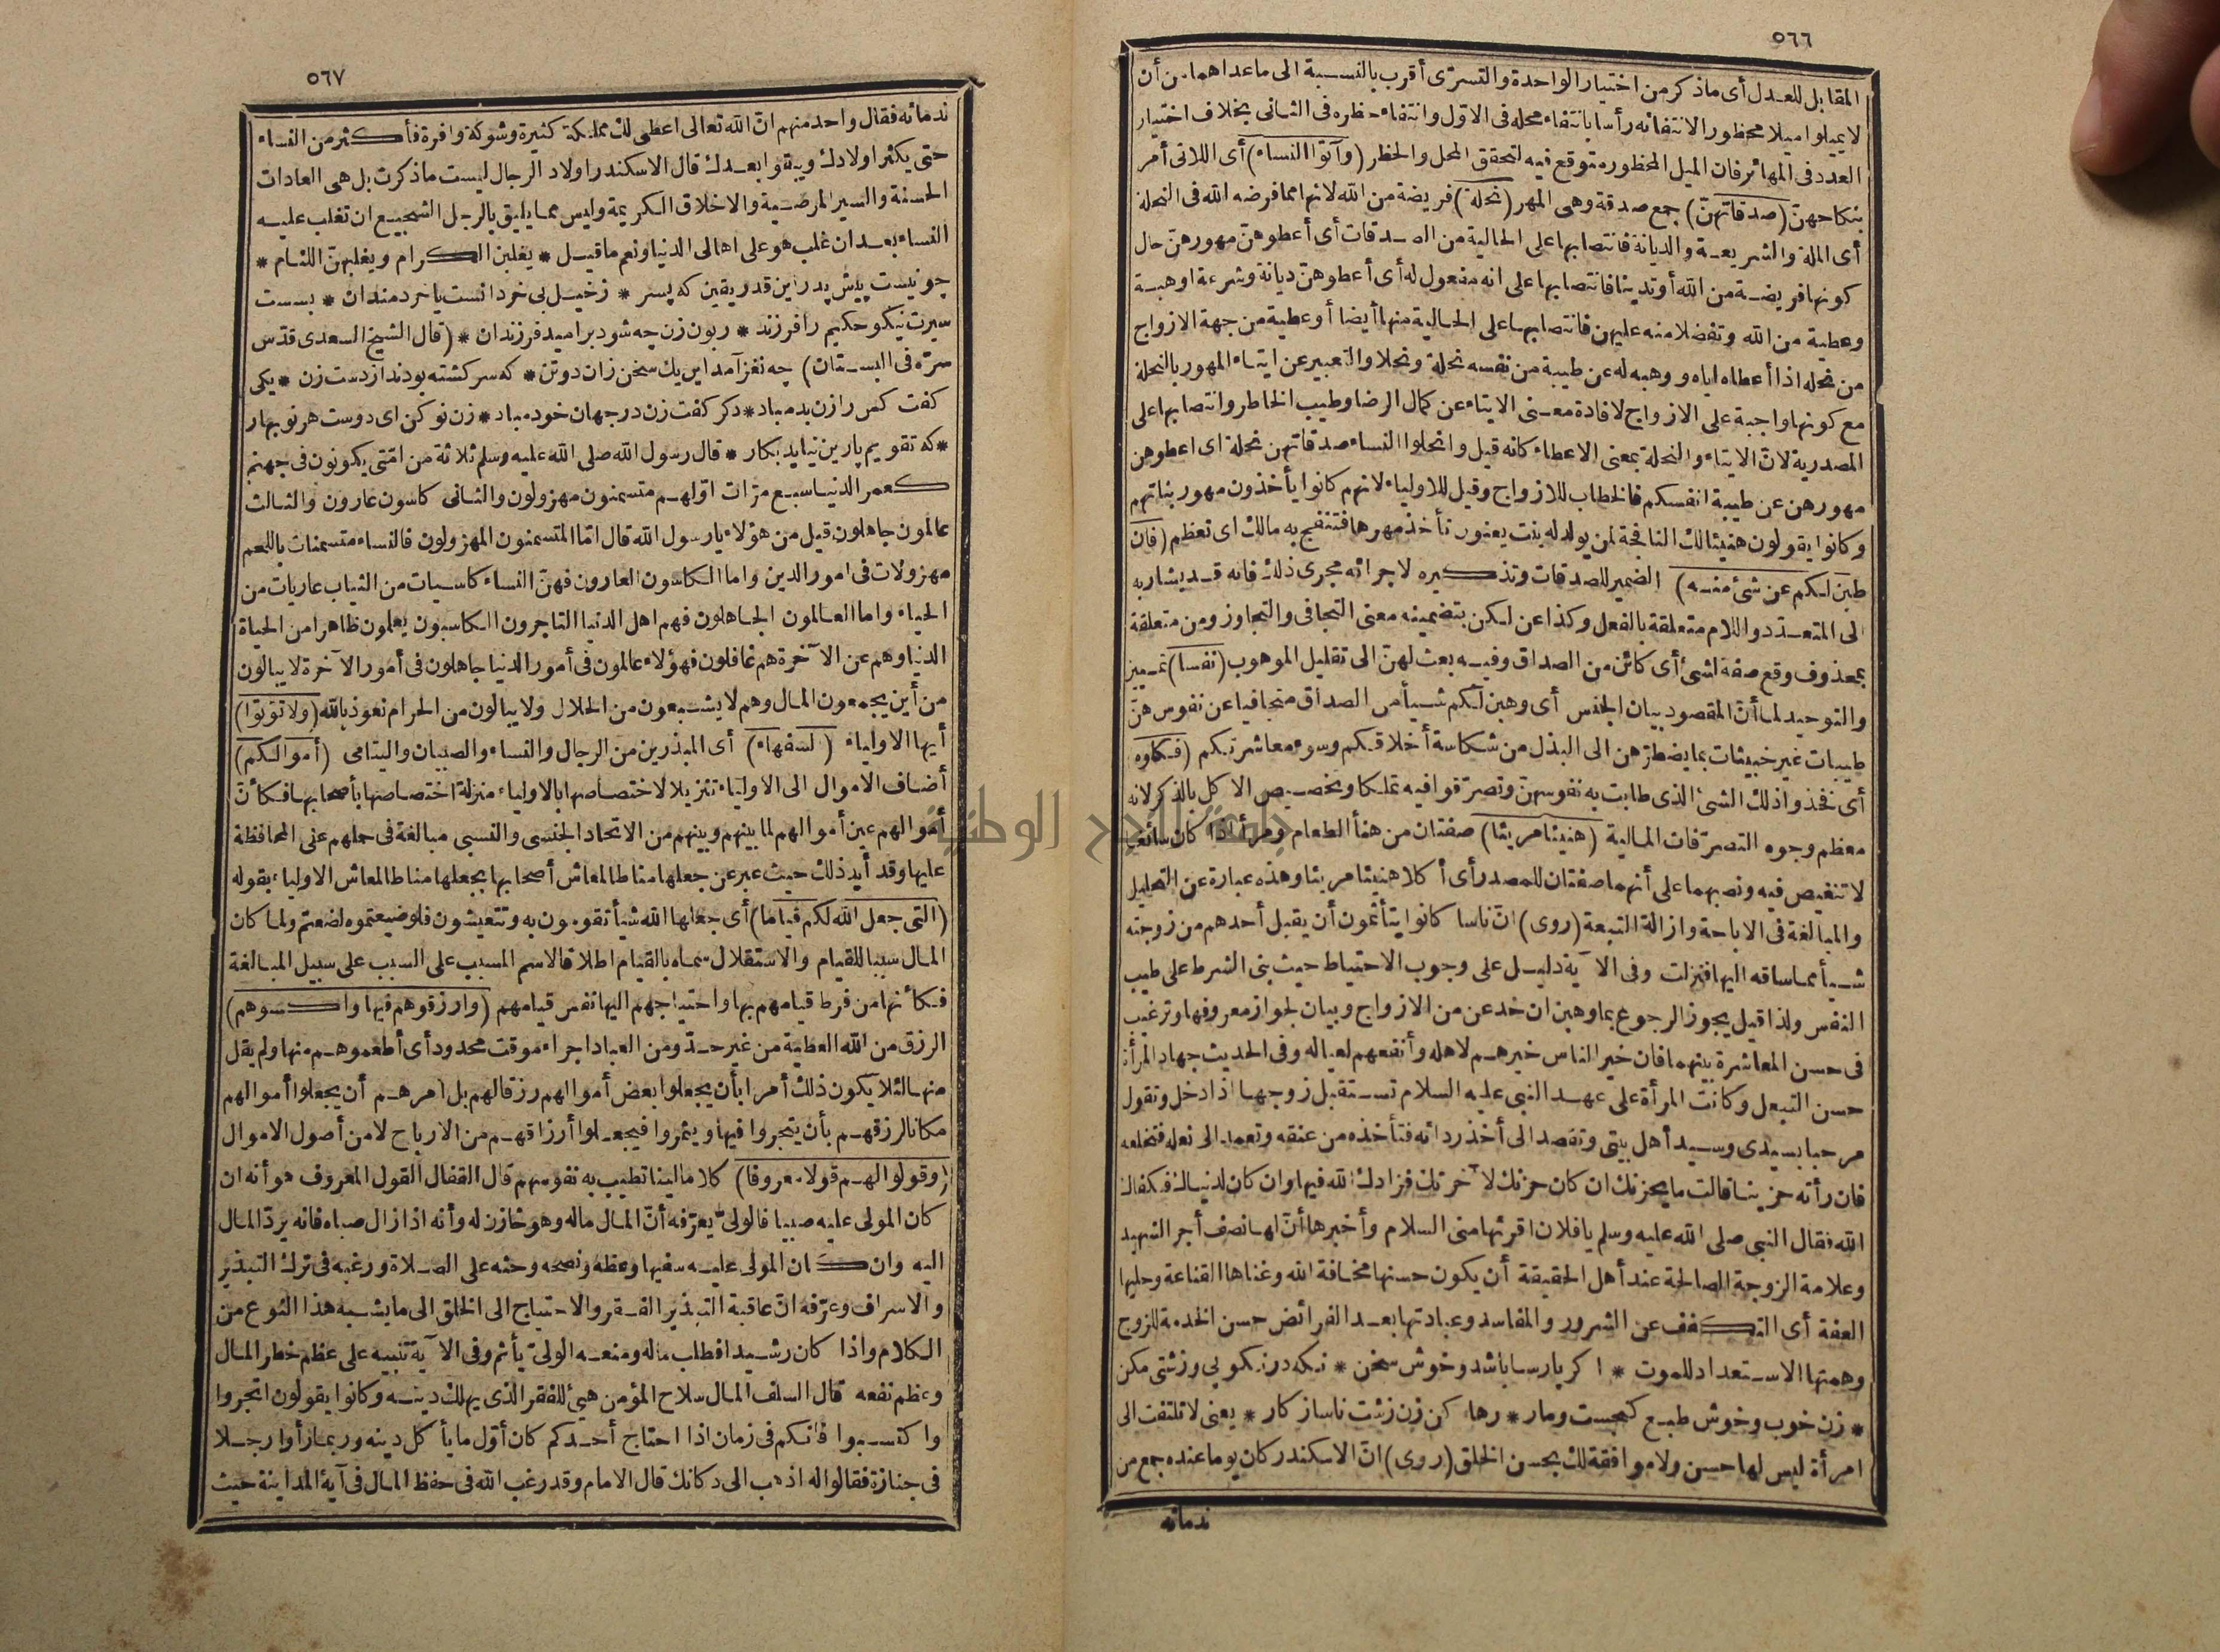 ٥٦٦
المقابل للعدل أى ماذكر من اختيار الواحدة والتسرّى أقرب بالنسبة الى ماعداهما من أن
لا يميلوا ميلا محظورا لانتفائه رأسا بانتفاء محله فى الاوّل وانتفاء حظره فى الثانى بخلاف اختيار
العدد فى المهائر فان الميل المحظور متوقع فيه لتحقق المحل والحظر (وآتوا النساء) أى اللاتى أمر
بنكاحهنّ (صدقاتهنّ) جمع صدقة وهى المهر (نحلة) فريضة من الله لانها مما فرضه الله فى النحلة
أى الملة والشريعة والديانة فانتصابها على الحالية من الصدقات أى أعطوهنّ مهورهنّ حال
كونها فريضة من الله أو تدينا فانتصابها على انه مفعول له أى أعطوهنّ ديانة وشرعة او هبة
وعطية من الله وتفضلا منه عليهن فانتصابها على الحالية منها أيضا أو عطية من جهة الازواج
من نحله اذا أعطاه اياه ووهبه له عن طيبة من نفسه نحلة ونحلا والتعبير عن ايتاء المهور بالنحلة
مع كونها واجبة على الازواج لافادة معنى الايتاء عن كمال الرضا وطيب الخاطر وانتصابها على
المصدرية لانّ الايتاء والنحلة بمعنى الاعطاء كانه قيل وانحلوا النساء صدقاتهن نحلة اى اعطوهن
مهورهن عن طيبة انفسكم فالخطاب للازواج وقيل للاولياء لانهم كانوا يأخذون مهور بناتهم
وكانوا يقولون هنيئالك النافجة لمن يولد له بنت يعنون تأخذ مهرها فتنفج به مالك اى تعظم (فان
طبن لكم عن شئ منه) الضمير للصدقات وتذكيره لاجرائه مجرى ذلك فانه قد يشار به
الى المتعدّد واللام متعلقة بالفعل وكذا عن لكن بتضمينه معنى التجافى والتجاوز ومن متعلقة
بمحذوف وقع صفة لشئ أى كائن من الصداق وفيه بعث لهنّ الى تقليل الموهوب (نفسا) تمييز
والتوحيد لما أنّ المقصود بيان الجنس أى وهبن لكم شيأ من الصداق متجافيا عن نفوسهنّ
طيبات غير خبيثات بما يضطرّهن الى البذل من شكاسة أخلاقكم وسوء معاشرتكم (فكلوه
أى فخذوا ذلك الشئ الذى طابت به نفوسهنّ وتصرّفوا فيه تملكا وتخصيص الاكل بالذكر لانه
معظم وجوه التصرّفات المالية (هنيئا مريئا) صفتان من هنأ الطعام ومرأ اذا كان سائغا
لا تنغيص فيه ونصبهما على أنهما صفتان للمصدر أى أكلا هنيئا مريئا وهذه عبارة عن التحليل
والمبالغة فى الاباحة وازالة التبعة (روى) انّ ناسا كانوا يتأثمون أن يقبل أحدهم من زوجته
شيأ مما ساقه اليها فنزلت وفى الآية دليل على وجوب الاحتياط حيث بنى الشرط على طيب
النفس ولذا قيل يجوز الرجوع بما وهبن ان خدعن من الازواج وبيان لجواز معروفها وترغيب
فى حسن المعاشرة بينهما فان خير الناس خيرهم لاهله وأنفعهم لعياله وفى الحديث جهاد المرأة
حسن التبعل وكانت المرأة على عهد النبى عليه السلام تستقبل زوجها اذا دخل وتقول
مرحبا بسيدى وسيد أهل بيتى وتقصد الى أخذ ردائه فتأخذه من عنقه وتعمد الى نعله فتخلعه
فان رأته حزينا قالت ما يحزنك ان كان حزنك لآخرتك فزادك الله فيها وان كان لدنياك فكفاك
الله فقال النبى صلى الله عليه وسلم يا فلان اقرئها منى السلام وأخبرها أنّ لها نصف أجر الشهيد
وعلامة الزوجة الصالحة عند أهل الحقيقة أن يكون حسنها مخافة الله وغناها القناعة وحليها
العفة أى التكفف عن الشرور والمفاسد وعبادتها بعد الفرائض حسن الخدمة للزوج
وهمتها الاستعداد للموت * اكر پارسا باشد وخوش سخن * نكه در نكويى وزشتى مكن
* زن خوب وخوش طبع كنجست ومار * رها كن زن زشت ناسازكار * يعنى لا تلتفت الى
امرأة ليس لها حسن ولا موافقة لك بحسن الخلق (روى) انّ الاسكندر كان يوما عنده جمع من
ندمائه
٥٦٧
ندمائه فقال واحد منهم انّ الله تعالى اعطى لك مملكة كثيرة وشوكة وافرة فأكثر من النساء
حتى يكثر اولادك ويبقوا بعدك قال الاسكندر اولاد الرجال ليست ما ذكرت بل هى العادات
الحسنة والسير المرضية والاخلاق الكريمة وليس مما يليق بالرجل الشجيع ان تغلب عليه
النساء بعد ان غلب هو على اهالى الدنيا ونعم ما قيل * يغلبن الكرام ويغلبهنّ اللئام *
چونيست پيش پدر اين قدر يقين كه پسر * زخيل بى خردانست يا خردمندان * بسست
سيرت نيكو حكيم را فرزند * زبون زن چه شود بر اميد فرزندان * (قال الشيخ السعدى قدّس
سرّه فى البستان) چه نغز آمد اين يك سخن زان دوتن * كه سركشته بودند از دست زن * يكى
كفت كس را زن بد مباد * دكر كفت زن در جهان خود مباد * زن نو كن اى دوست هر نو بهار
* كه تقويم پارين نيايد بكار * قال رسول الله صلى الله عليه وسلم ثلاثة من امّتى يكونون فى جهنم
كعمر الدنيا سبع مرّات اوّلهم متسمنون مهزولون والثانى كاسون عارون والثالث
عالمون جاهلون قيل من هؤلاء يا رسول الله قال امّا المتسمنون المهزولون فالنساء متسمنات باللحم
مهزولات فى امور الدين واما الكاسون العارون فهنّ النساء كاسيات من الثياب عاريات من
الحياء واما العالمون الجاهلون فهم اهل الدنيا التاجرون الكاسبون يعلمون ظاهرا من الحياة
الدنيا وهم عن الآخرة هم غافلون فهؤلاء عالمون فى أمور الدنيا جاهلون فى أمور الآخرة لا يبالون
من أين يجمعون المال وهم لا يشبعون من الحلال ولا يبالون من الحرام نعوذ بالله (ولا تؤتوا)
أيها الاولياء (السفهاء) أى المبذرين من الرجال والنساء والصبيان واليتامى (أموالكم)
أضاف الاموال الى الاولياء تنزيلا لاختصاصها بالاولياء منزلة اختصاصها بأصحابها فكأنّ
أموالهم عين أموالهم لما بينهم وبينهم من الاتحاد الجنسى والنسبى مبالغة فى حملهم على المحافظة
عليها وقد أيد ذلك حيث عبر عن جعلها مناطا لمعاش أصحابها بجعلها مناطا لمعاش الاولياء بقوله
(التى جعل الله لكم قياما) أى جعلها الله شيأ تقومون به وتتعيشون فلو ضيعتموه لضعتم ولما كان
المال سببا للقيام والاستقلال سماه بالقيام اطلاقا لاسم المسبب على السبب على سبيل المبالغة
فكأنها من فرط قيامهم بها واحتياجهم اليها نفس قيامهم (وارزقوهم فيها واكسوهم)
الرزق من الله العطية من غير حدّ ومن العباد اجراء موقت محدود أى أطعموهم منها ولم يقل
منها لئلا يكون ذلك أمرا بأن يجعلوا بعض أموالهم رزقا لهم بل أمرهم أن يجعلوا أموالهم
مكانا لرزقهم بأن يتجروا فيها ويثمروا فيجعلوا أرزاقهم من الارباح لا من أصول الاموال
(وقولوا لهم قولا معروفا) كلاما لينا تطيب به نفوسهم قال القفال القول المعروف هو أنه ان
كان المولى عليه صبيا فالولىّ يعرّفه أنّ المال ماله وهو خازن له وأنه اذا زال صباه فانه يردّ المال
اليه وان كان المولى عليه سفيها وعظه ونصحه وحثه على الصلاة ورغبه فى ترك التبذير
والاسراف وعرّفه انّ عاقبة التبذير الفقر والاحتياج الى الخلق الى ما يشبه هذا النوع من
الكلام واذا كان رشيدا فطلب ماله ومنعه الولىّ يأثم وفى الآية تنبيه على عظم خطر المال
وعظم نفعه قال السلف المال سلاح المؤمن هيئ للفقر الذى يهلك دينه وكانوا يقولون اتجروا
واكتسبوا فانكم فى زمان اذا احتاج أحدكم كان أوّل ما يأكل دينه وربما رأوا رجلا
فى جنازة فقالوا له اذهب الى دكانك قال الامام وقد رغب الله فى حفظ المال فى آية المداينة حيث